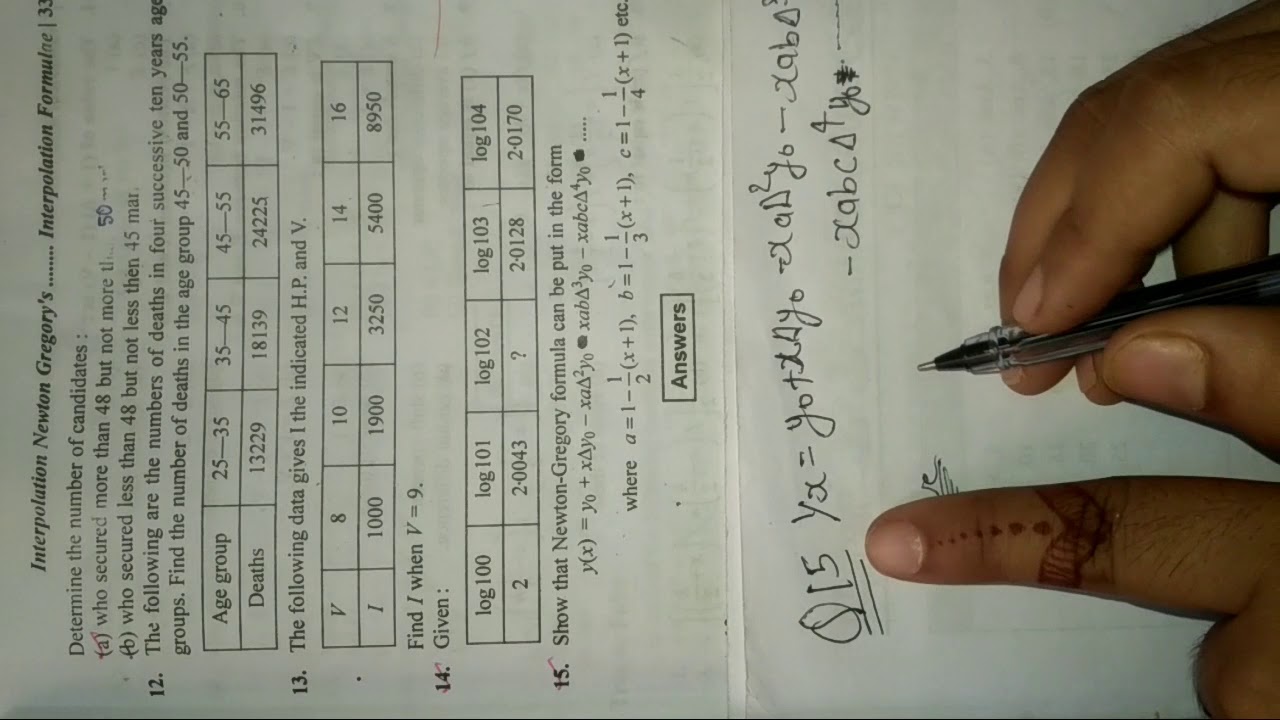 Interpolation Newton Gregory's ........ Interpolation Formulae | 33
Determine the number of candidates :
(a) who secured more than 48 but not more 50
(b) who secured less than 48 but not less then 45 mar.
12. The following are the numbers of deaths in four successive ten years age
groups. Find the number of deaths in the age group 45—50 and 50—55.
Age group 25—35 35—45 45—55 55—65
Deaths 13229 18139 24225 31496
13. The following data gives I the indicated H.P. and V.
V 8 10 12 14 16
I 1000 1900 3250 5400 8950
Find I when V = 9.
14. Given :
log100 log101 log102 log103 log104
2 2·0043 ? 2·0128 2·0170
15. Show that Newton-Gregory formula can be put in the form
y(x) = y₀ + xΔy₀ – xaΔ²y₀ xabΔ³y₀ – xabcΔ⁴y₀ .....
where a = 1 – 1/2 (x + 1), b = 1 – 1/3 (x + 1), c = 1 – 1/4 (x + 1) etc.
Answers
Q15 yx = y₀ + xΔy₀ - xaΔ²y₀ - xabΔ³
- xabcΔ⁴y₀ -----